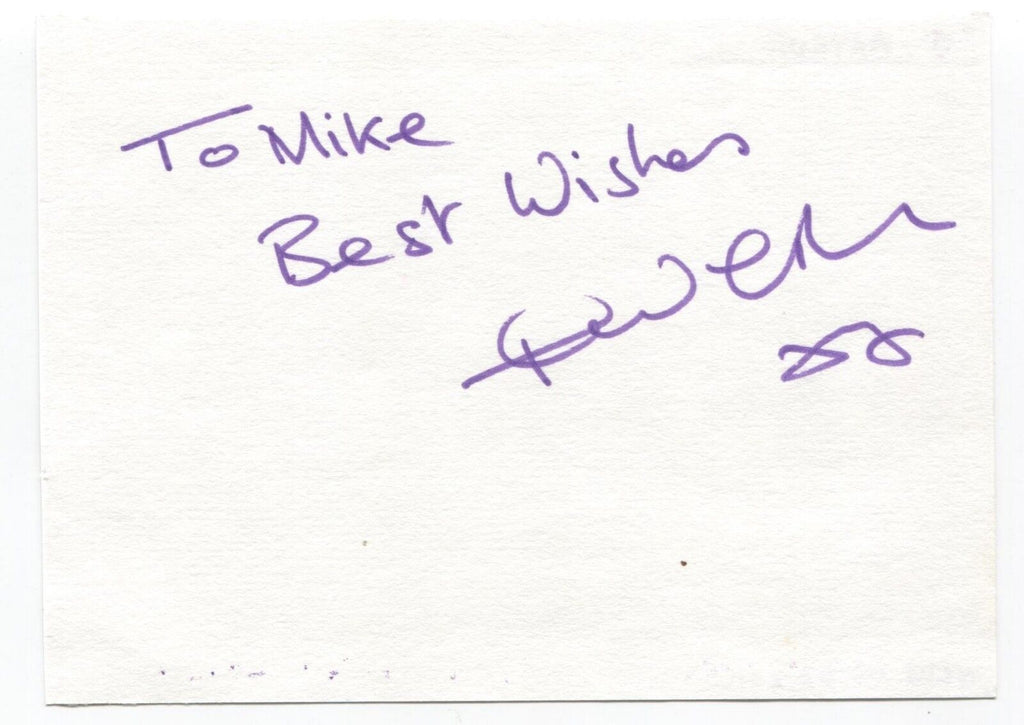 To Mike
Best Wishes
xx